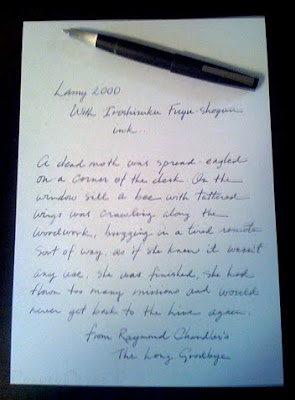 Lamy 2000
With Iroshizuku Fuyu-shogun
ink..
A dead moth was spread-eagled
on a corner of the desk. On the
window sill a bee with tattered
wings was crawling along the
woodwork, buzzing in a tired remote
sort of way, as if she knew it wasn't
any use, she was finished, she had
flown too many missions and would
never get back to the hive again.
from Raymond Chandler's
The Long Goodbye